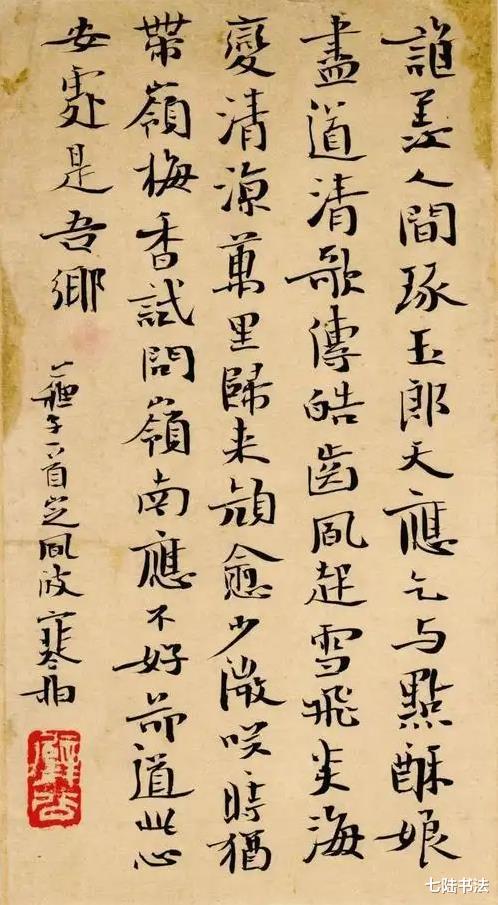 誰羡人間琢玉郎天應乞与點酥娘
盡道清歌傳皓齒風起雪飛炎海
變清涼萬里歸来顔愈少微咲時猶
帶嶺梅香試問嶺南應不好却道此心
安處是吾鄉
蘇子一首定風波寒
七陆书法